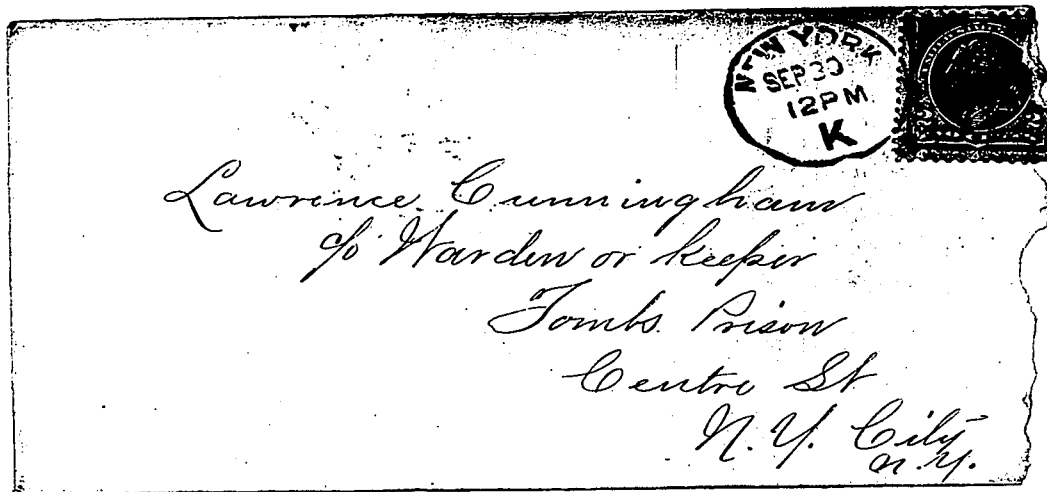 NEW YORK
SEP 30
12 PM
K
Lawrence Cunningham
c/o Warden or Keeper
Tombs Prison
Centre St
N. Y. City
N. Y.